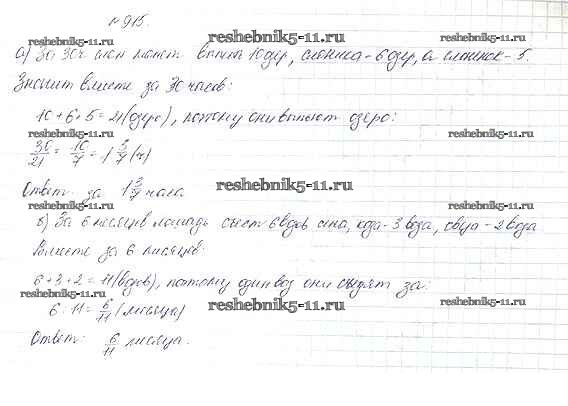 № 915.
reshebnik5-11.ru
reshebnik5-11.ru
а) За 30ч слон может выпить 10 озер, слониха - 6 озер, а слоненок - 5.
reshebnik5-11.ru
reshebnik5-11.ru
Значит вместе за 30 часов:
10 + 6 + 5 = 21 (озеро), поэтому они выпьют озеро:
reshebnik5-11.ru
reshebnik5-11.ru
30/21 = 10/7 = 1 3/7 (ч)
reshebnik5-11.ru
Ответ: за 1 3/7 часа
reshebnik5-11.ru
б) За 6 месяцев лошадь съест 6 возов сена, коза - 3 воза, овца - 2 воза
reshebnik5-11.ru
reshebnik5-11.ru
Вместе за 6 месяцев:
6 + 3 + 2 = 11 (возов), поэтому один воз они съедят за:
reshebnik5-11.ru
reshebnik5-11.ru
reshebnik5-11.ru
6 : 11 = 6/11 (месяца)
Ответ: 6/11 месяца.